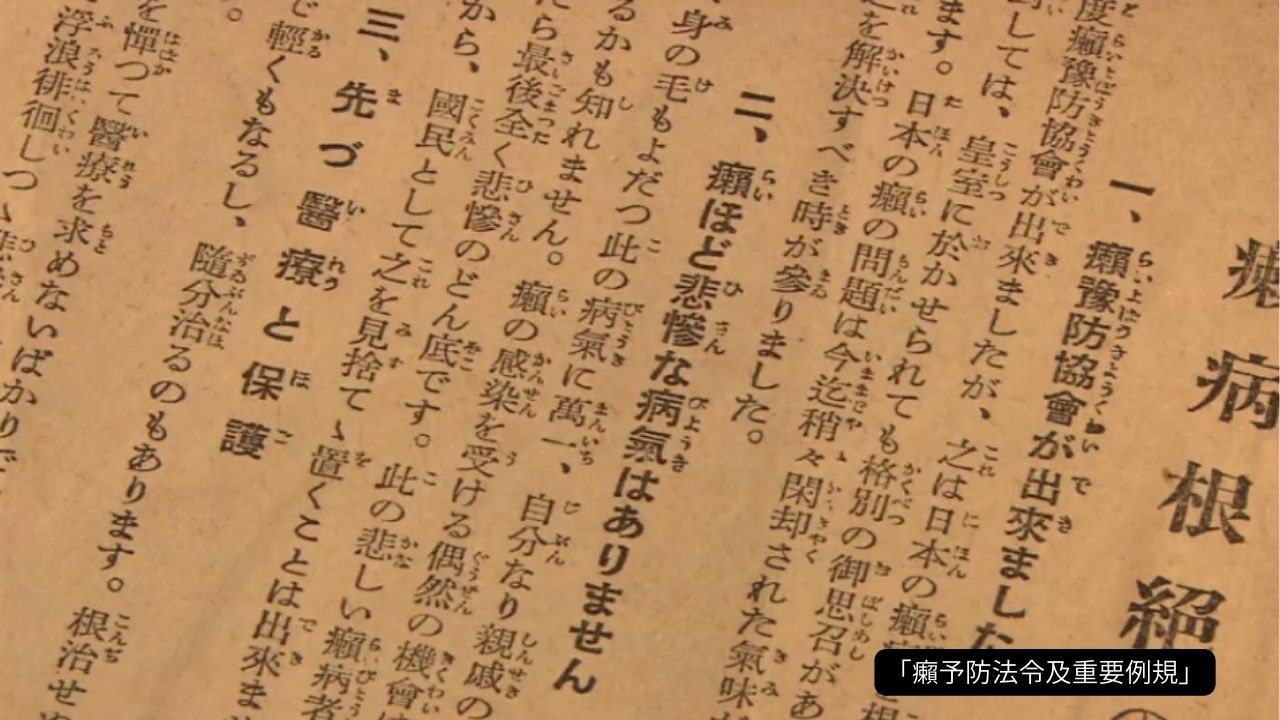 癩病根絕の
一、癩豫防協會が出來ました
度癩豫防協會が出來ましたが、之は日本の癩
しては、皇室に於かせられても格別の御思召があ
ます。日本の癩の問題は今迄稍々閑却された氣味
を解決すべき時が參りました。
二、癩ほど悲慘な病氣はありません
身の毛もよだつ此の病氣に萬一、自分なり親戚の
るかも知れません。癩の感染を受ける偶然の機會
たら最後全く悲慘のどん底です。此の悲しい癩病者
から、國民として之を見捨てゝ置くことは出來ま
三、先づ醫療と保護
で輕くもなるし、隨分治るのもあります。根治せ
。
を憚つて醫療を求めないばかりで
浮浪徘徊しつゝ
「癩予防法令及重要例規」